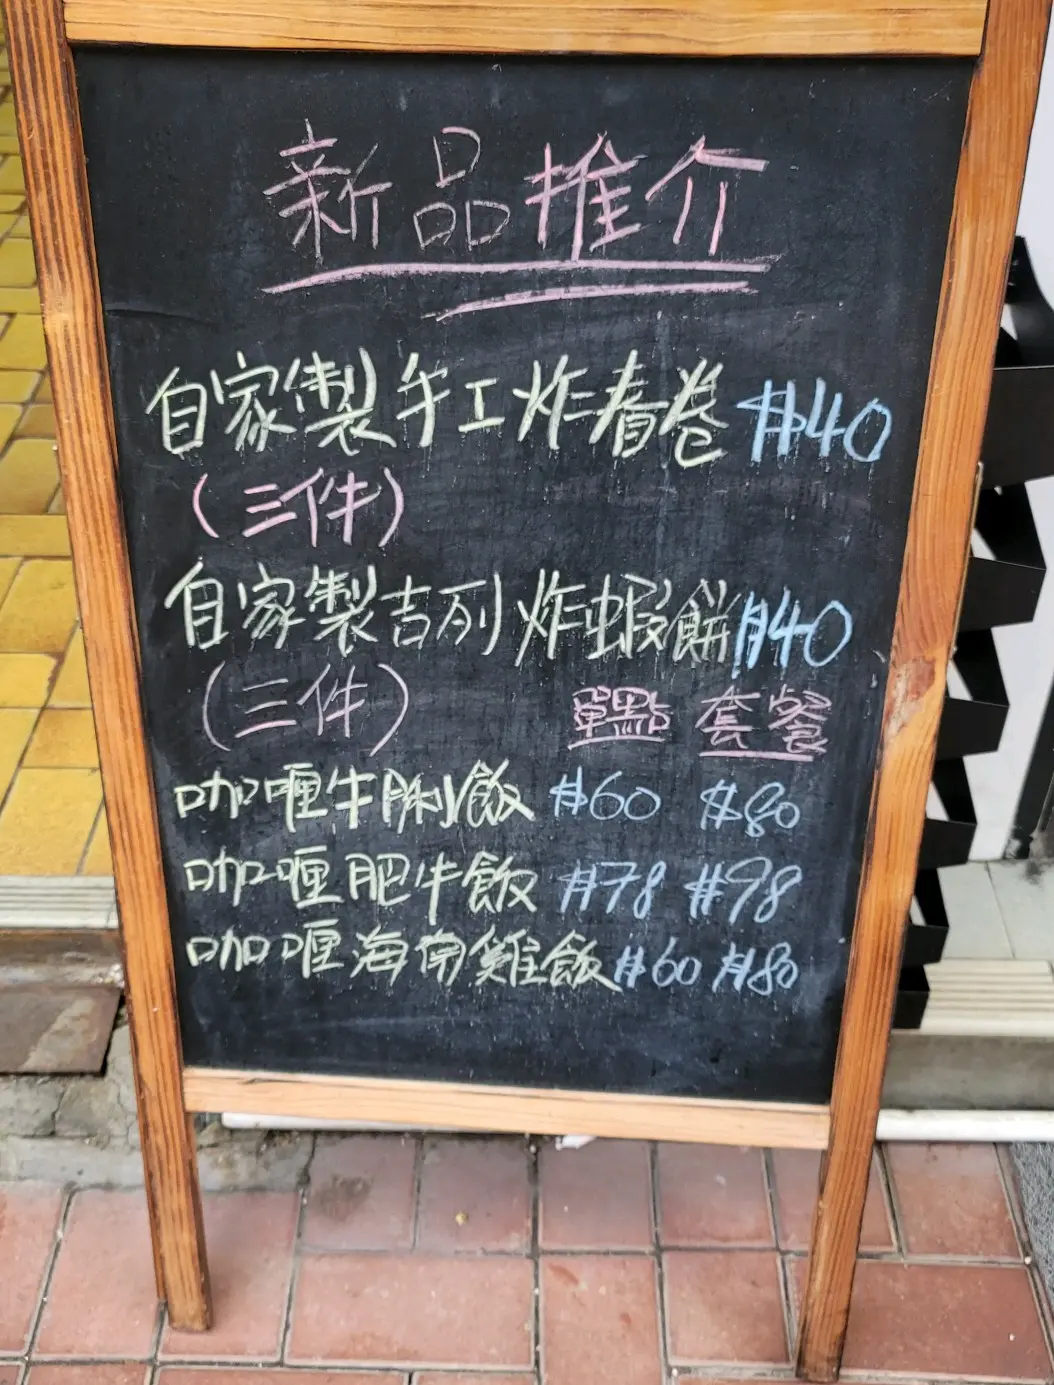 新品推介
自家製手工炸春卷 $40
(三件)
自家製吉列炸蝦餅 $40
(三件)
單點 套餐
咖喱牛脷飯 $60 $80
咖喱肥牛飯 $78 $98
咖喱海南雞飯 $60 $80